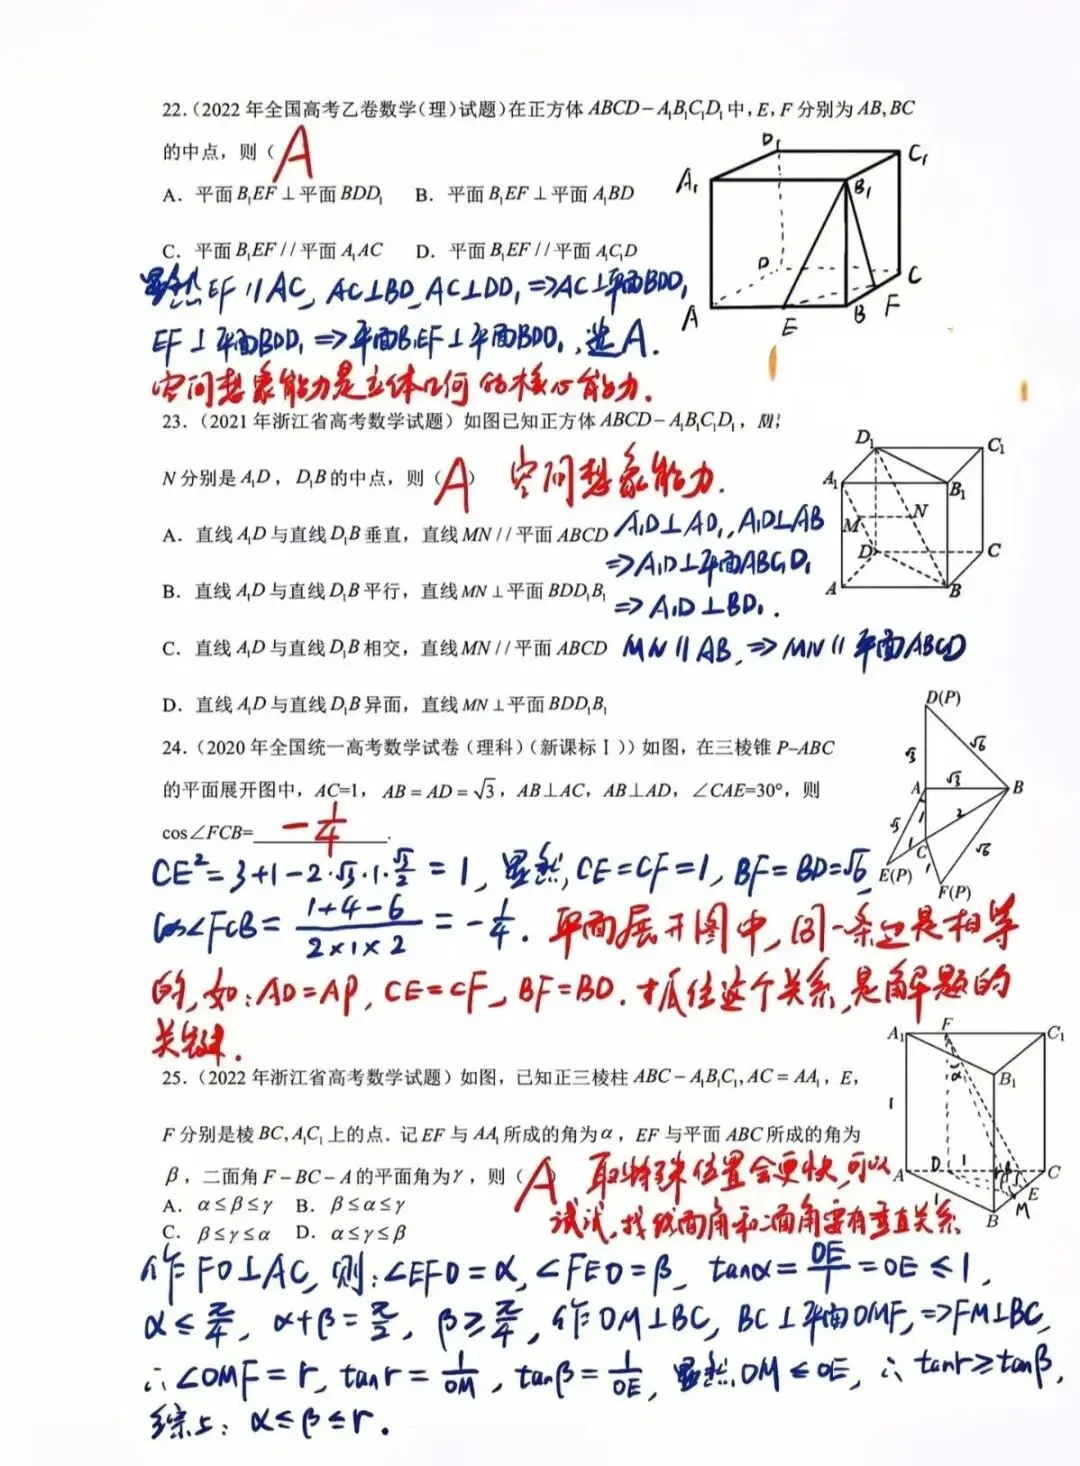 22.（2022 年全国高考乙卷数学（理）试题）在正方体 ABCD－A₁B₁C₁D₁ 中，E，F 分别为 AB，BC
的中点，则（ A
A．平面 B₁EF⊥平面 BDD₁ B．平面 B₁EF⊥平面 A₁BD
C．平面 B₁EF//平面 A₁AC D．平面 B₁EF//平面 A₁C₁D
D₁ C₁ A₁ B₁ D C A E B F
显然 EF∥AC，AC⊥BD，AC⊥DD₁⇒AC⊥平面BDD₁
EF⊥平面BDD₁⇒平面B₁EF⊥平面BDD₁，选A.
空间想象能力是立体几何的核心能力.
23.（2021 年浙江省高考数学试题）如图已知正方体 ABCD－A₁B₁C₁D₁，
N 分别是 A₁D，D₁B 的中点，则（ A ） 空间想象能力.
D₁ C₁ A₁ B₁ M N D C A B
A．直线 A₁D 与直线 D₁B 垂直，直线 MN//平面 ABCD A₁D⊥AD₁，A₁D⊥AB
⇒A₁D⊥平面ABC₁D₁
B．直线 A₁D 与直线 D₁B 平行，直线 MN⊥平面 BDD₁B₁ ⇒A₁D⊥BD₁.
C．直线 A₁D 与直线 D₁B 相交，直线 MN//平面 ABCD MN∥AB，⇒MN∥平面ABCD
D．直线 A₁D 与直线 D₁B 异面，直线 MN⊥平面 BDD₁B₁
24.（2020 年全国统一高考数学试卷（理科）（新课标Ⅰ））如图，在三棱锥 P–ABC
的平面展开图中，AC=1，AB＝AD＝√3，AB⊥AC，AB⊥AD，∠CAE=30°，则
cos∠FCB= －1/4 .
D(P) √3 √6 A √3 B √3 1 2 1 C √6 E(P) 1 F(P)
CE²=3+1−2·√3·1·√3/2=1，显然，CE=CF=1，BF=BD=√6
cos∠FCB=(1+4−6)/(2×1×2)=−1/4. 平面展开图中，同一条边是相等
的，如：AD=AP，CE=CF，BF=BD. 抓住这个关系，是解题的
关键.
25.（2022 年浙江省高考数学试题）如图，已知正三棱柱 ABC－A₁B₁C₁，AC＝AA₁，E，
F 分别是棱 BC，A₁C₁ 上的点．记 EF 与 AA₁ 所成的角为 α，EF 与平面 ABC 所成的角为
β，二面角 F－BC－A 的平面角为 γ，则（ A ） 取特殊位置会更快，可以
A．α≤β≤γ B．β≤α≤γ 试试，找线面角和二面角要有垂直关系
C．β≤γ≤α D．α≤γ≤β
A₁ F C₁ α B₁ 1 A O 1 C 1 E M B
作FO⊥AC，则：∠EFO=α，∠FEO=β，tanα=OE/1=OE≤1，
α≤π/4，α+β=π/2，β≥π/4，作OM⊥BC，BC⊥平面OMF，⇒FM⊥BC
∴∠OMF=r，tanr=1/OM，tanβ=1/OE，显然，OM≤OE，∴tanr≥tanβ，
综上：α≤β≤r.